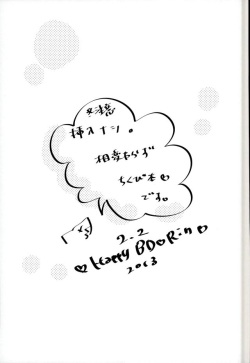 挿入ナシ。
相変わらず
ちくび本♡
です。
2.2
♡Happy BD♡Rin♡
2013